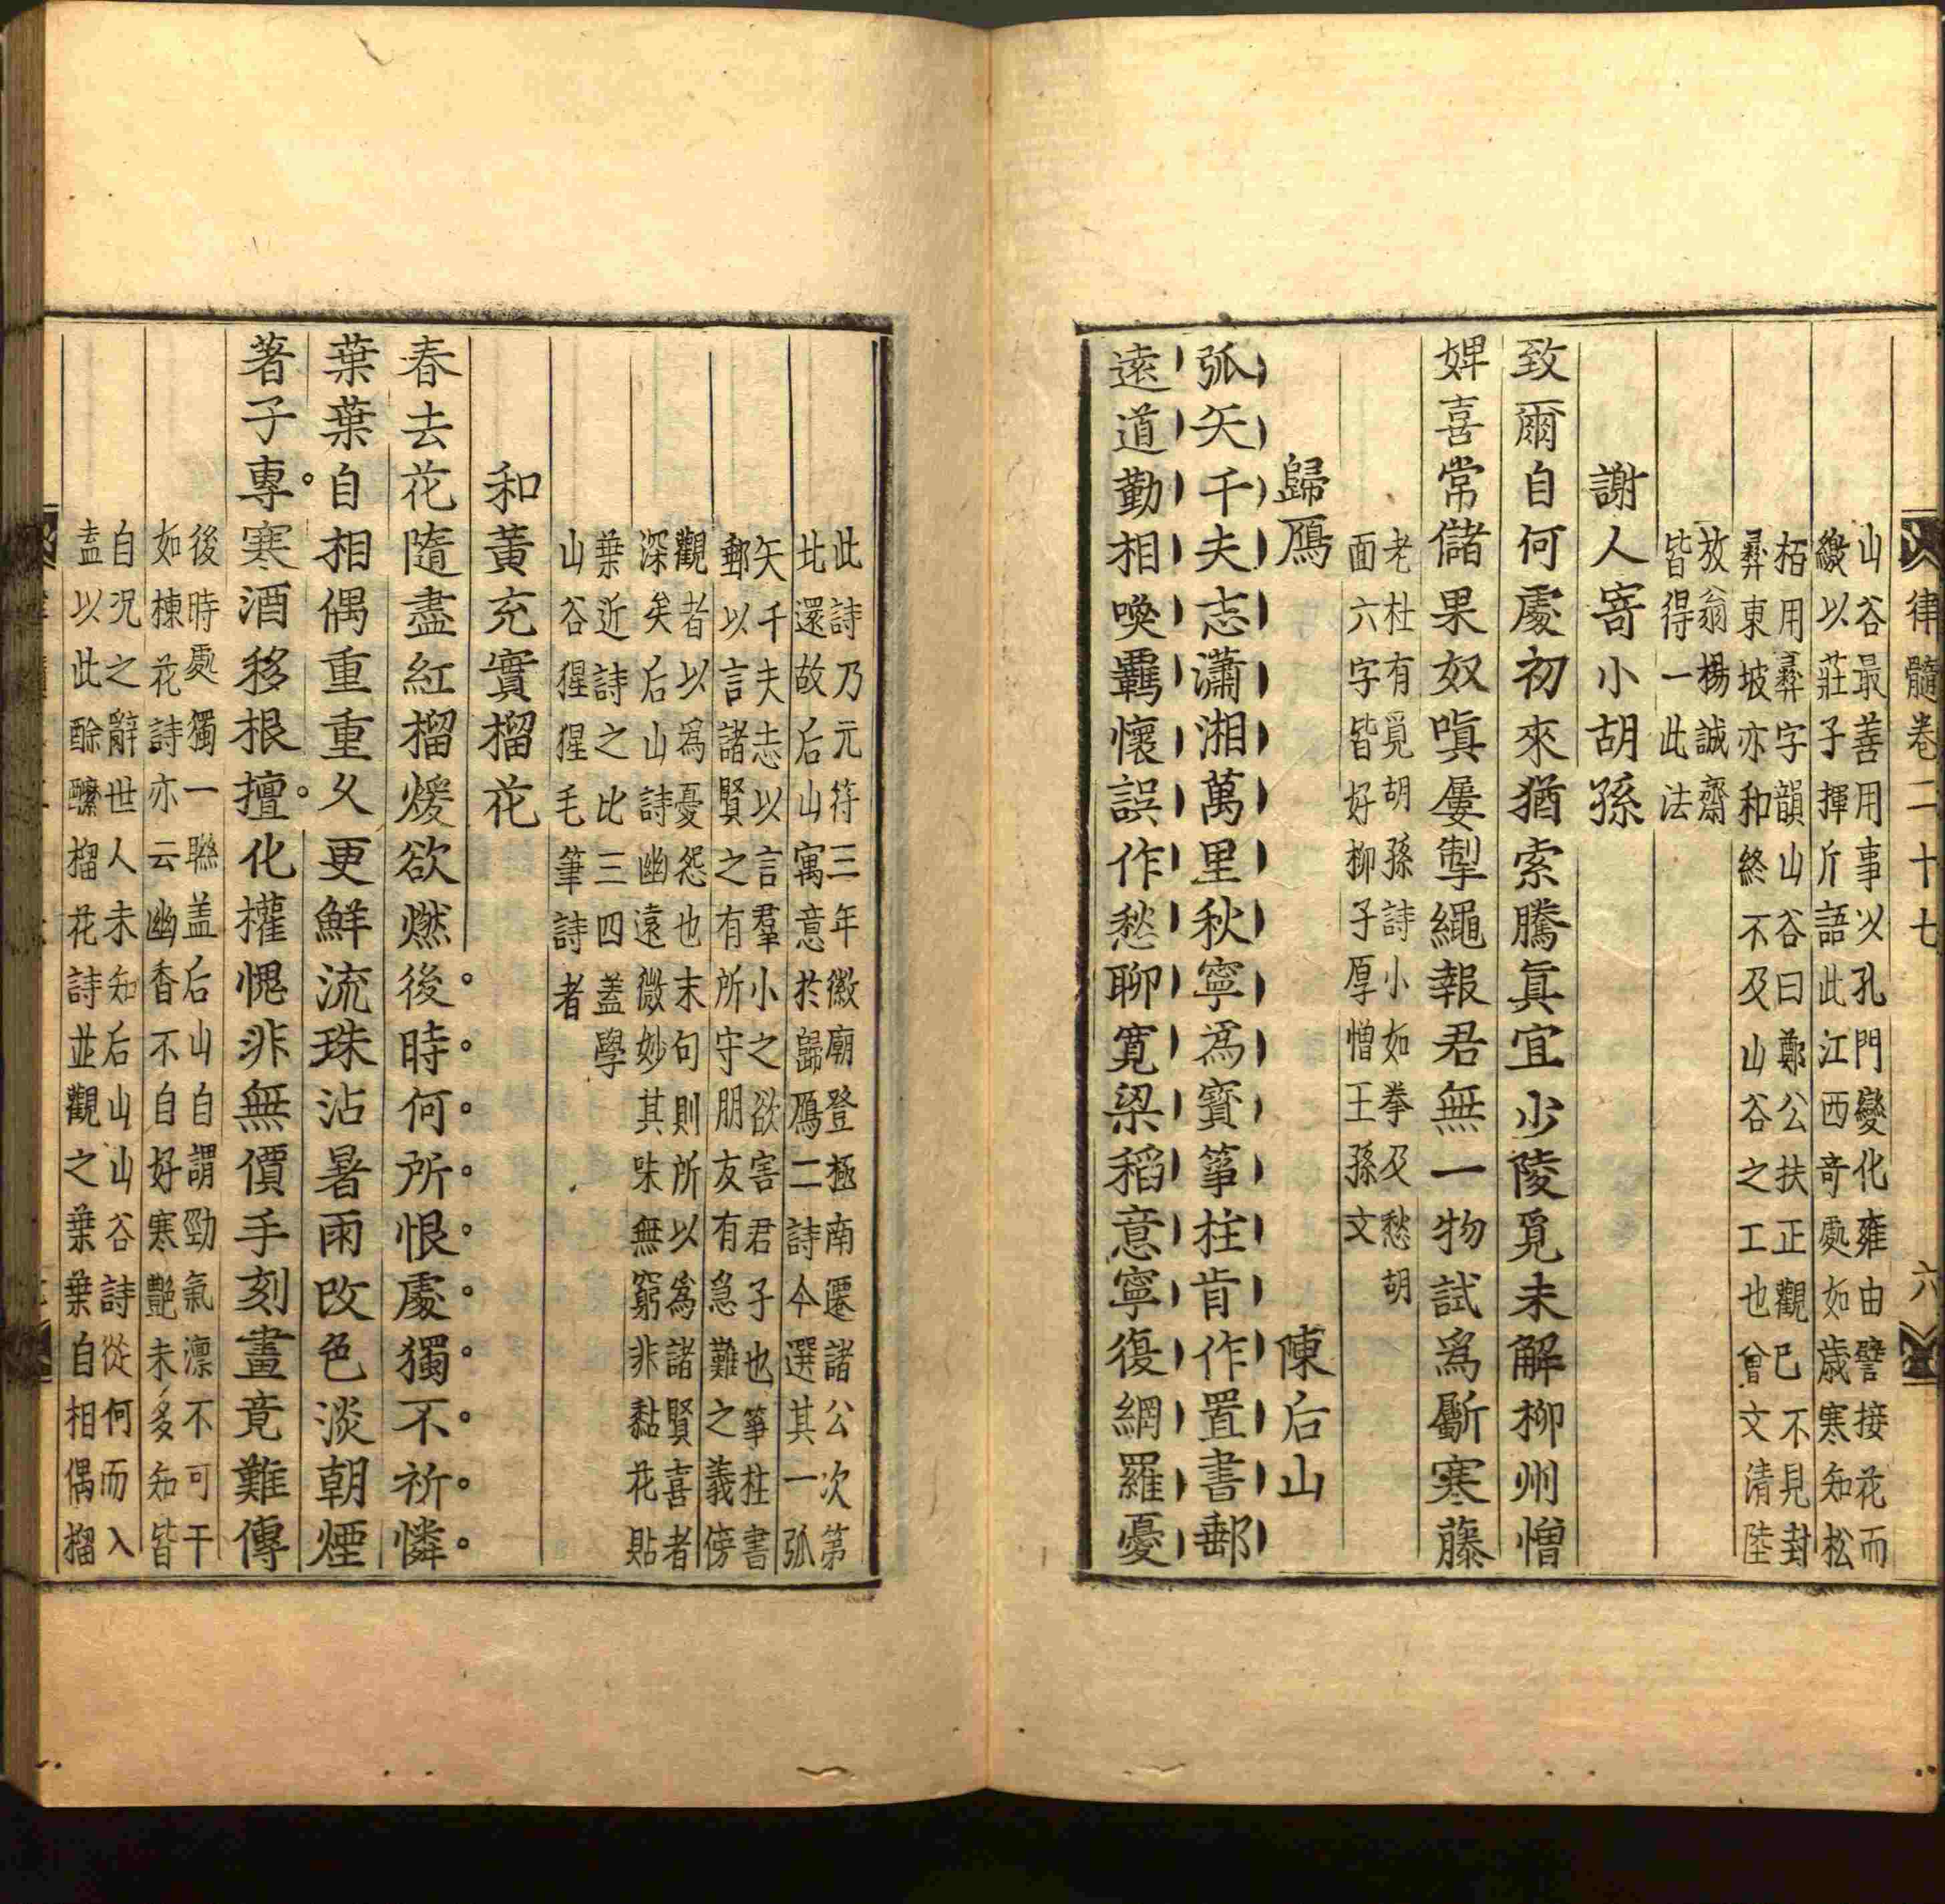 律髓卷二十七
六
山谷最善用事以孔門變化雍由譬接花而
繳以莊子揮斤語此江西竒處如歳寒知松
栢用彝字韻山谷曰鄭公扶正觀已不見封
彝東坡亦和終不及山谷之工也曾文清陸
放翁楊誠齋
皆得一此法
謝人寄小胡孫
致爾自何處初來猶索騰眞宜少陵覓未解柳州憎
婢喜常儲果奴嗔屢掣繩報君無一物試爲斸寒藤
老杜有覓胡孫詩小如拳及愁胡
面六字皆好柳子厚憎王孫文
歸鴈 陳后山
弧矢千夫志瀟湘萬里秋寧爲寳筝柱肯作置書郵
逺道勤相喚羈懷誤作愁聊寬梁稻意寧復網羅憂
此詩乃元符三年徽廟登極南遷諸公次第
北還故后山寓意於歸鴈二詩今選其一弧
矢千夫志以言羣小之欲害君子也筝柱書
郵以言諸賢之有所守朋友有急難之義傍
觀者以爲憂怨也末句則所以為諸賢喜者
深矣后山詩幽遠微妙其味無窮非黏花貼
葉近詩之比三四盖學
山谷猩猩毛筆詩者
和黃充實榴花
春去花隨盡紅榴煖欲燃後時何所恨處獨不祈憐
葉葉自相偶重重久更鮮流珠沾暑雨改色淡朝煙
著子專寒酒移根擅化權愧非無價手刻畫竟難傳
後時處獨一聮盖后山自謂勁氣凛不可干
如楝花詩亦云幽香不自好寒艷未多知皆
自况之辭世人未知后山山谷詩從何而入
盍以此酴醿榴花詩並觀之葉葉自相偶榴